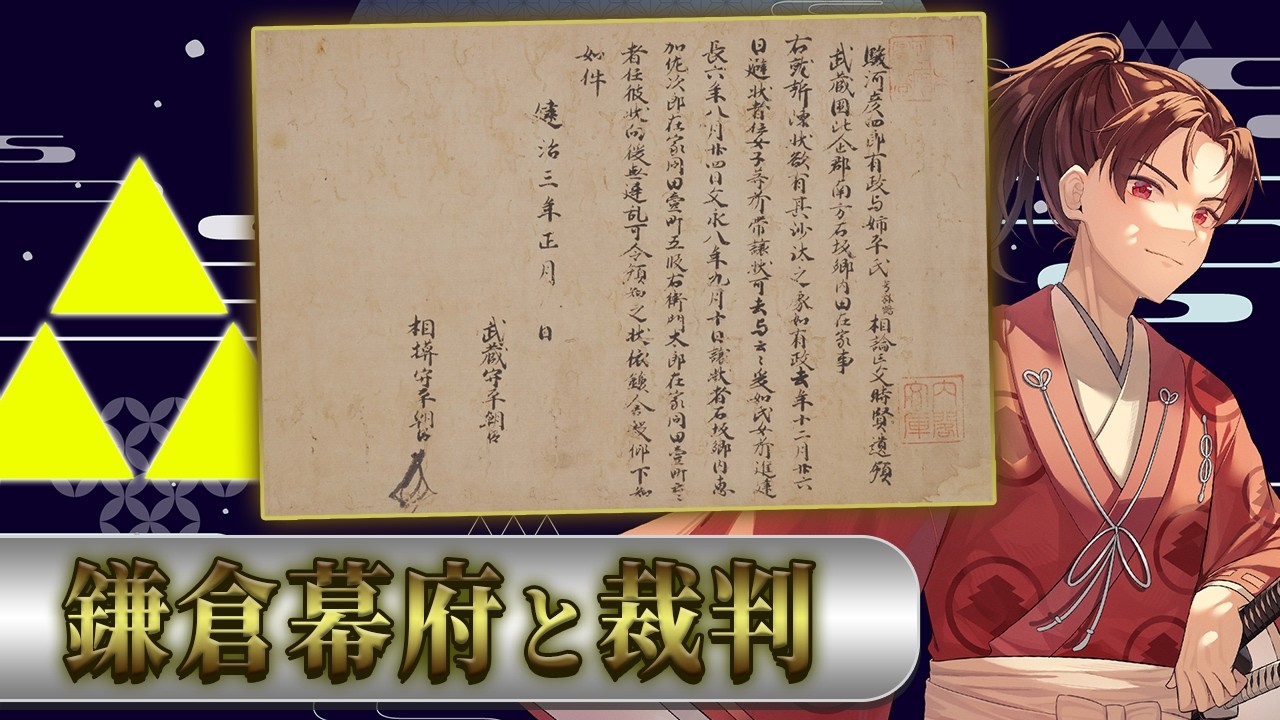 駿河彦四郎有政与姉平氏
相論亡父時賢道領
武蔵国比企郡南方石坂郷内田在家事
右就訴陳状欲有其沙汰之處如有政去年十二月廿六
日避状者任女子等所帯譲状可去与云々爰如氏女所進建
長六年八月廿四日文永八年九月十日譲状者石坂郷内恵
加佐次郎在家同田壹町五段右衛門太郎在家同田壹町云々
者任彼状向後無違乱可令領知之状依鎌倉殿仰下知
如件
建治三年正月 日
武蔵守平朝臣
相模守平朝臣
内閣文庫
鎌倉幕府と裁判